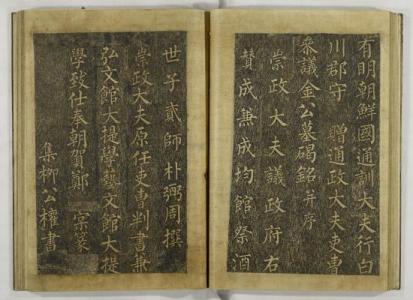 有明朝鮮國通訓大夫行白
川郡守 贈通政大夫吏曹
參議金公墓碣銘并序
崇政大夫議政府右
贊成兼成均館祭酒
世子貳師朴弼周撰
崇政大夫原任吏曹判書兼
弘文館大提學藝文館大提
學致仕奉朝賀鄭 宗篆
集柳公權書